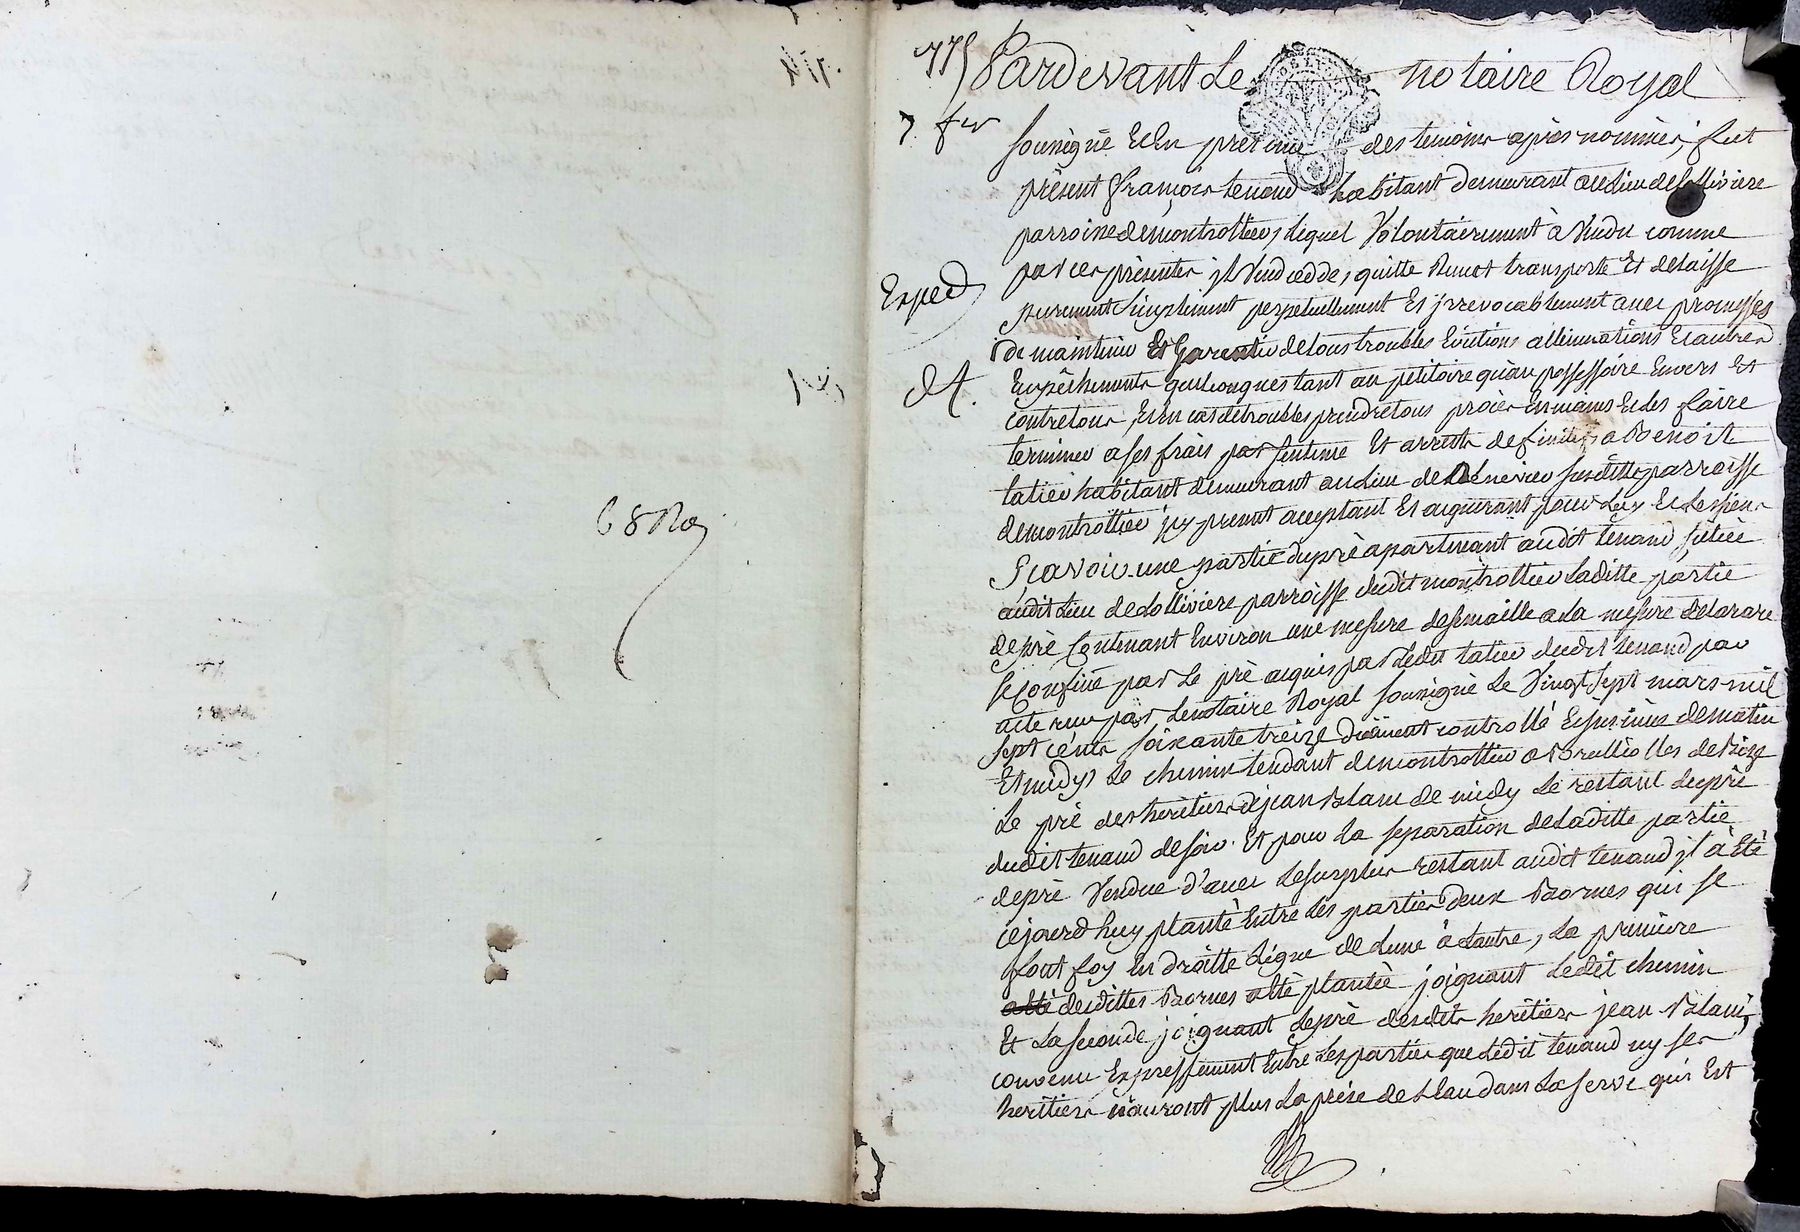 68 Ro
1775 Pardevant Le notaire Royal
7 fer
sousigné Et En presence des temoins après nommées, fut
présent françois tenand habitant demeurant au Lieu de Lolliviere
parroisse de montrottier, Lequel Volontairement à Vendu comme
par ces présentes il Vend cedde, quitte Remet transporte Et delaisse
Exped
purement simplement perpetuellement Et jrrevocablement avec promesses
de maintenir Et Garentir de tous troubles Evictions allienations Et autres
dt.
Empêchements quelconques tant au petitoire qu'au possessoire Envers Et
contre tous, Et En cas de troubles prendre tous procès En mains Et Les faire
terminer a ses frais par sentence Et arrests definitifs a Benoit
tatier habitant demeurant au Lieu de susditte parroisse
de montrottier jcy present acceptant Et acquerant pour Luy Et Les siens
Sçavoir une partie du pré apartenant audit tenand, sitüée
audit Lieu de Lolliviere parroisse dudit montrottier Laditte partie
de pré Contenant Environ une mesure de semaille a La mesure de Larare
se Confine par Le pré acquis par Ledit tatier dudit tenand par
acte reçu par Le notaire Royal sousigné Le Vingt sept mars mil
sept cents soixante treize düement controllé de matin
Et midy, Le chemin tendant de montrottier a Brullioles de Bize
Le pré des heritiers de jean Blanc de midy Le restant de pré
dudit tenand de soir. Et pour La separation de Laditte partie
de pré Vendue d'avec Le surplus restant audit tenand jl à Eté
cejourd'huy planté Entre Les parties deux Bornes qui se
font foy En droitte Ligne de Lune à Lautre, La premiere
desdittes Bornes a Eté plantée joignant Ledit chemin
Et La seconde joignant Le pré desdits heritiers jean Blanc,
convenu Expressement Entre Les parties que Ledit tenand ny ses
heritiers n'auront plus La prise de Leau dans La serve qui Est